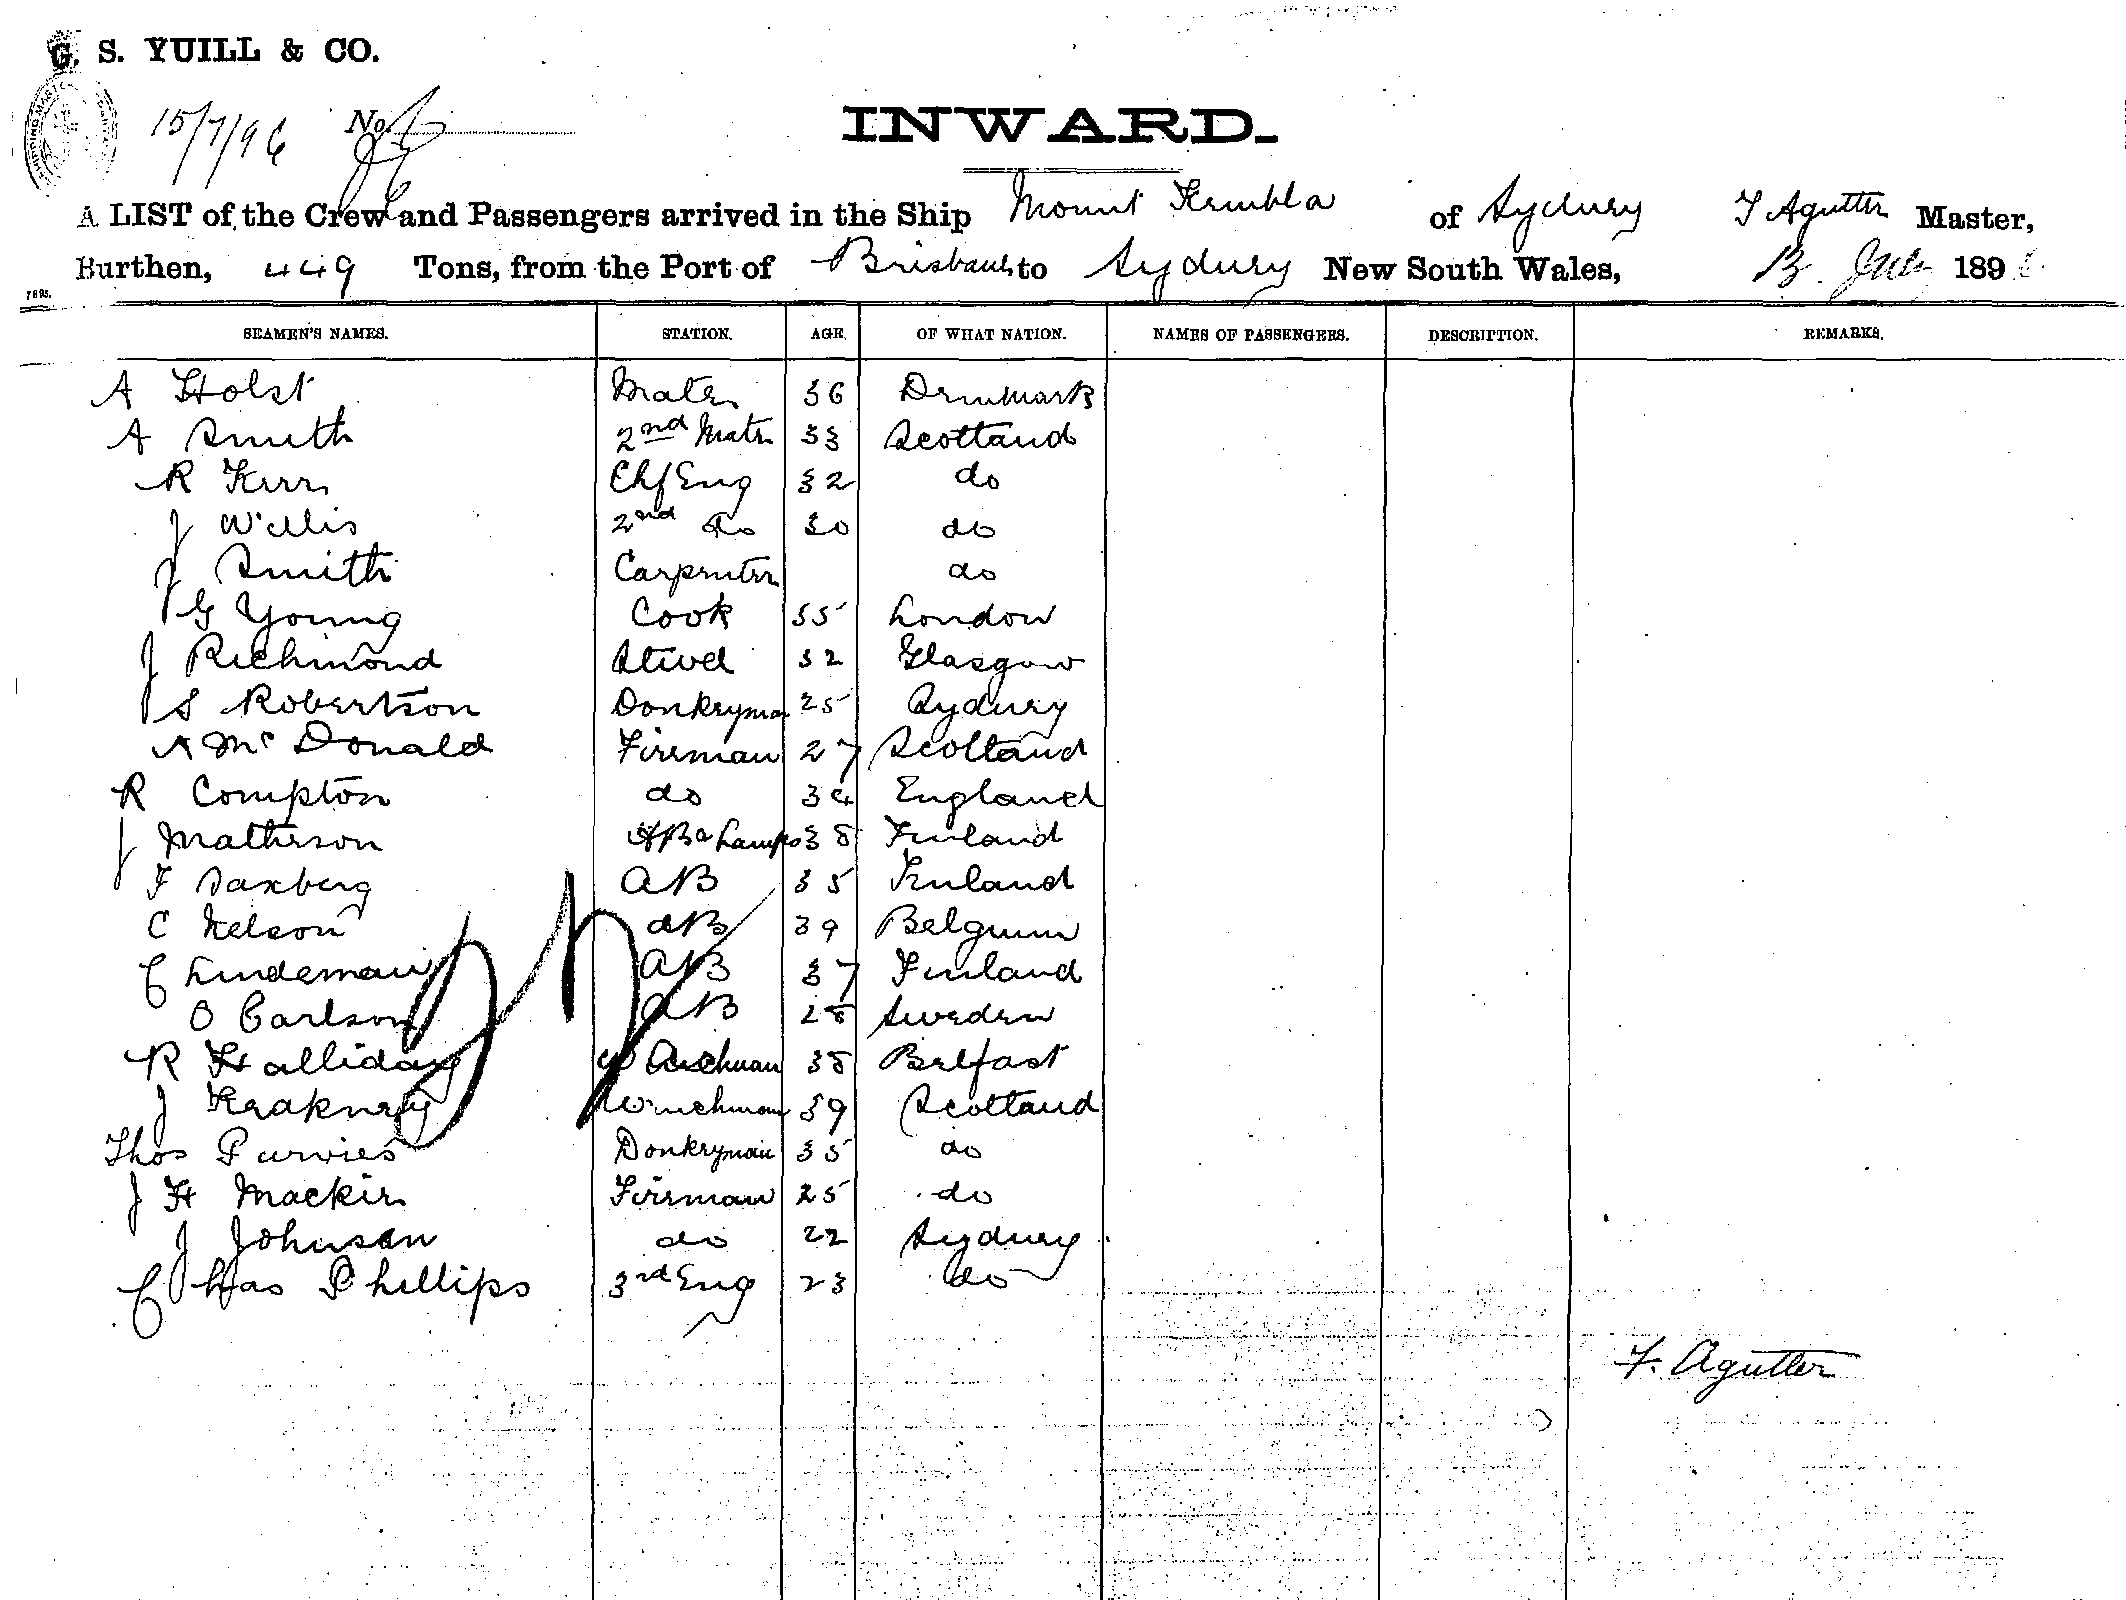 G. S. YUILL & CO.
15/7/96 No.
INWARD.
A LIST of the Crew and Passengers arrived in the Ship Mount Kembla of Sydney F Agutter Master,
Burthen, 449 Tons, from the Port of Brisbane to Sydney New South Wales, July 189
1895.
SEAMEN'S NAMES. STATION. AGE. OF WHAT NATION. NAMES OF PASSENGERS. DESCRIPTION. REMARKS.
A Holst Mate 36 Denmark
A Smith 2nd Mate 33 Scotland
R Kerr Chf Eng 32 do
J Willis 2nd do 30 do
J Smith Carpenter do
G Young Cook 55 London
J Richmond Stwd 52 Glasgow
S Robertson Donkeyman 25 Sydney
A McDonald Fireman 27 Scotland
R Compton do 34 England
J Matheson AB & Lamps 38 Finland
F Saxberg AB 35 Finland
C Nelson AB 39 Belgium
C Lindeman AB 37 Finland
O Carlson AB 28 Sweden
R Halliday 38 Belfast
J Winchman 39 Scotland
Thos Purvies Donkeyman 35 do
J H Mackie Fireman 25 do
J Johnson do 22 Sydney
Chas Phillips 3rd Eng 23 do
F. Agutter